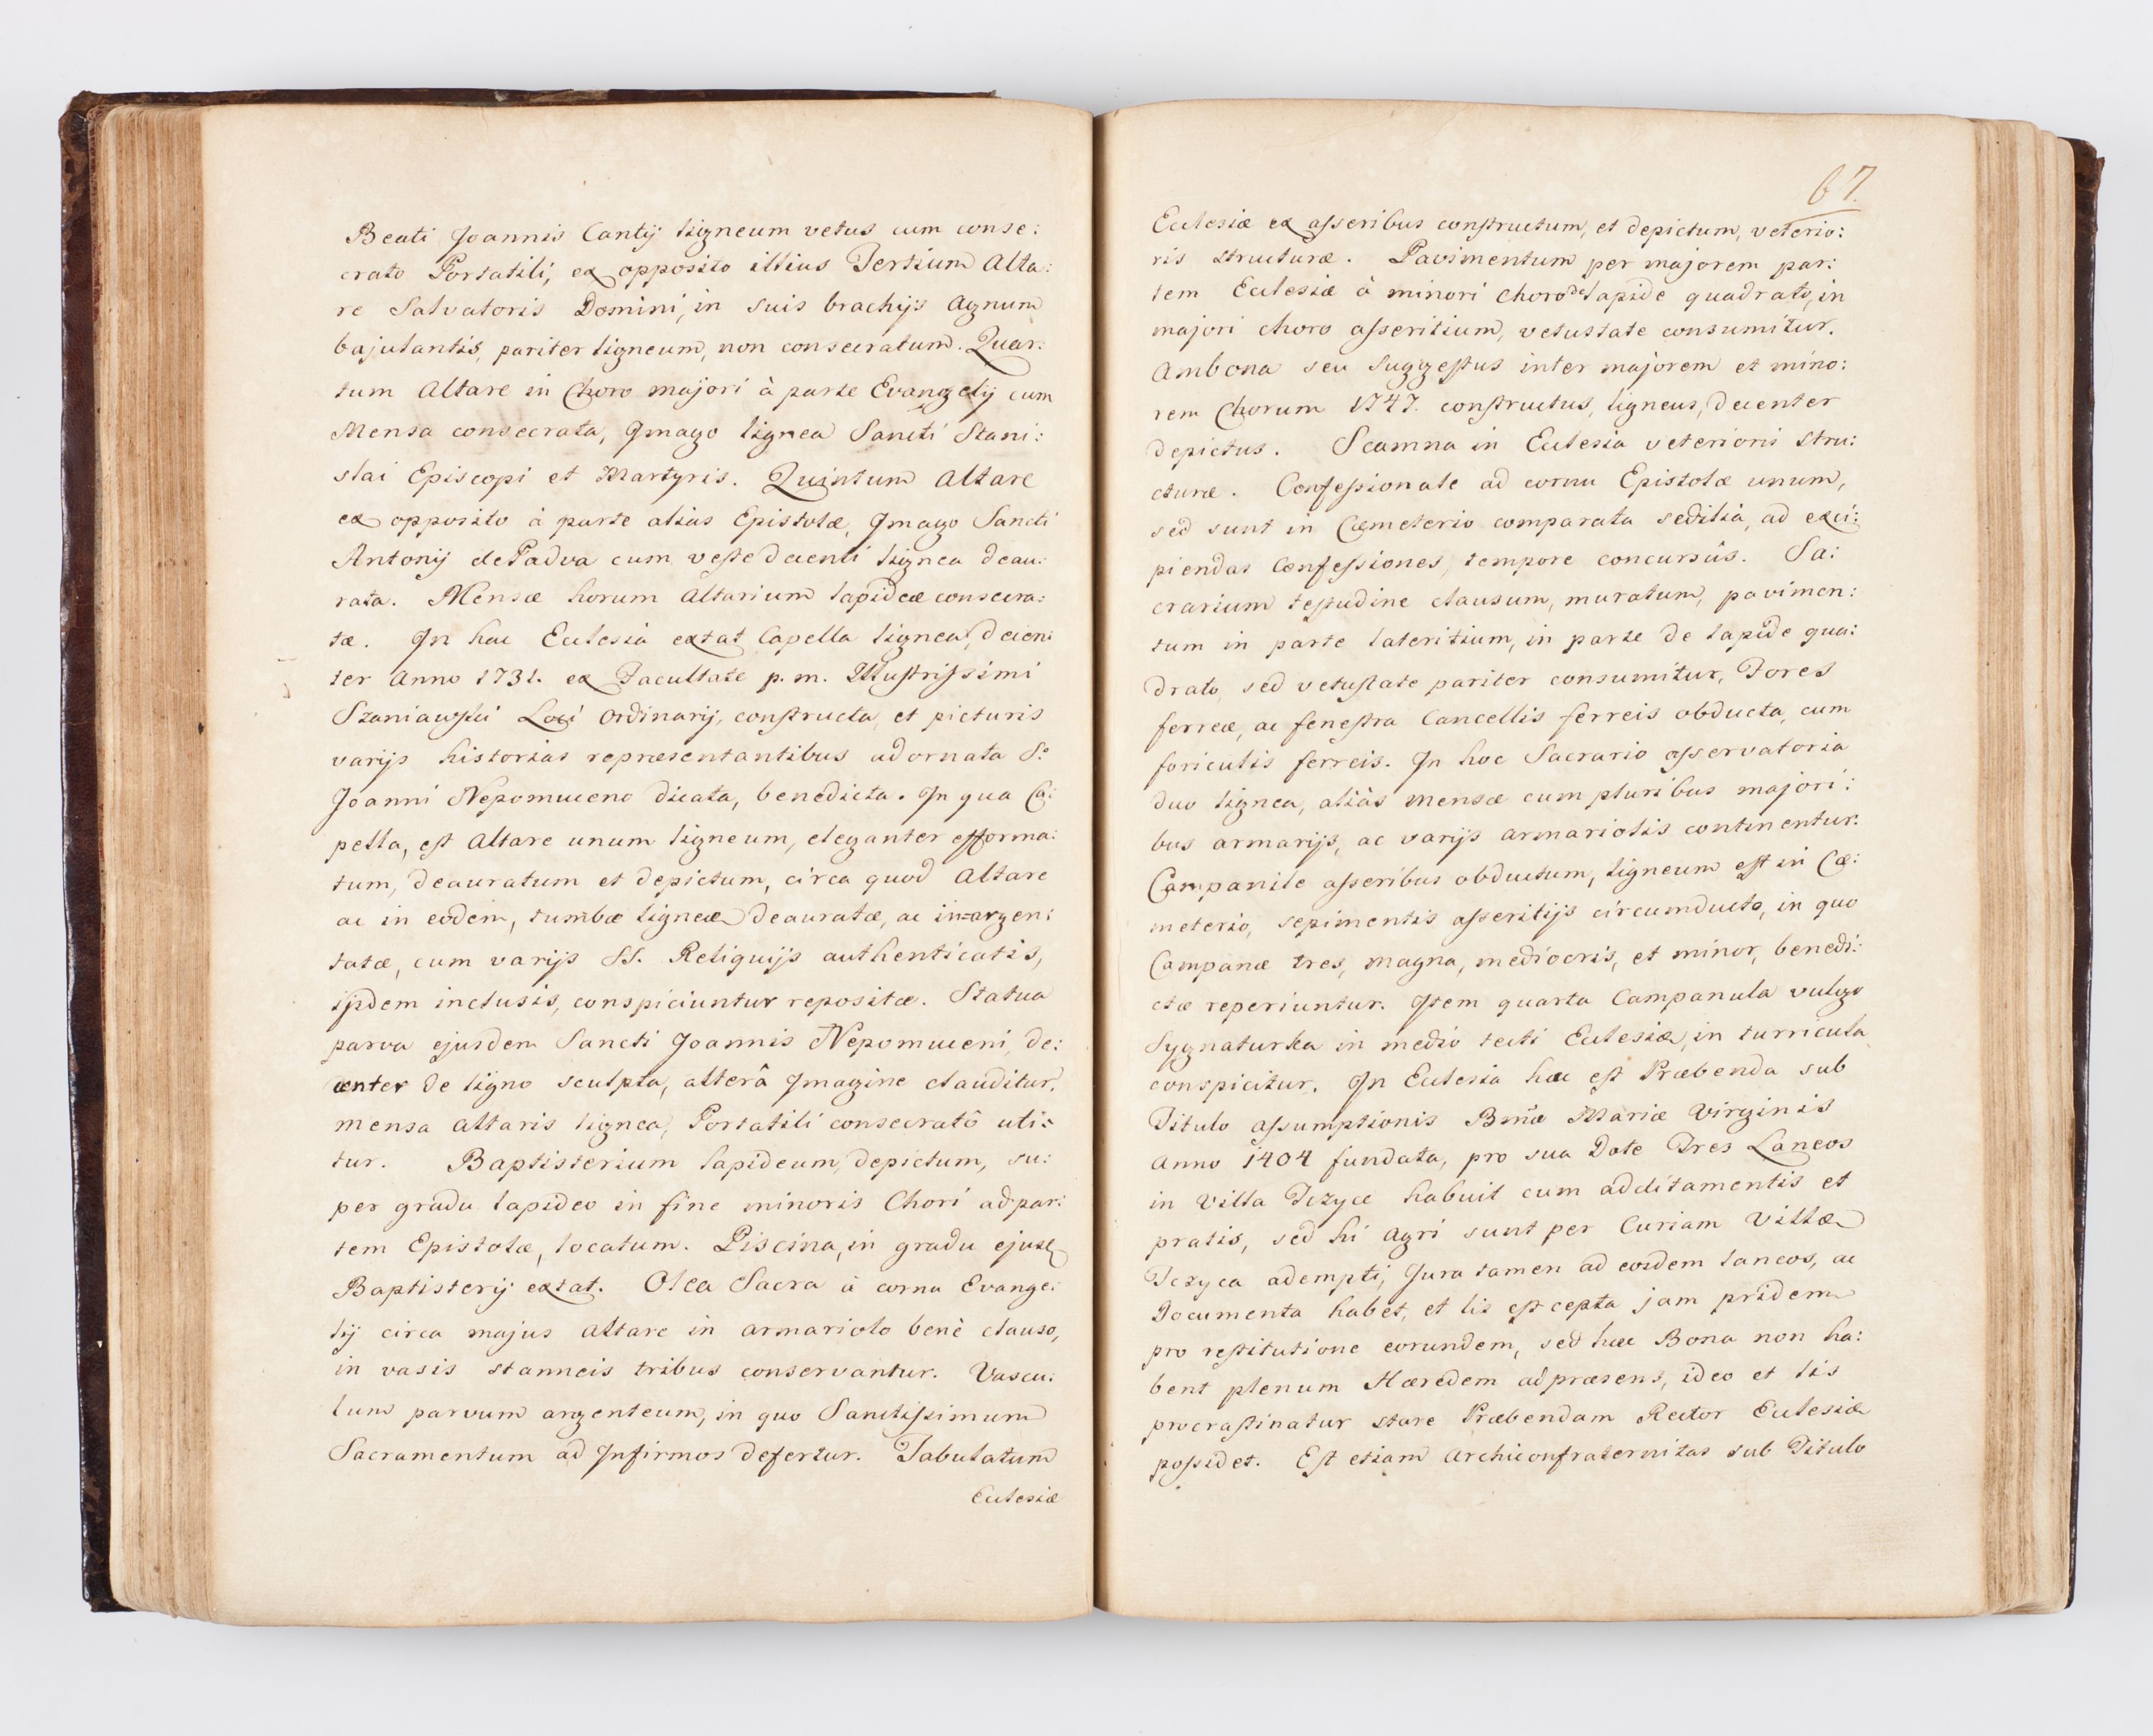 Beati Joannis Cantij ligneum vetus cum conse:
crato Portatili, ex opposito illius Tertium Alta:
re Salvatoris Domini, in suis brachijs Agnum
bajulantis, pariter ligneum, non consecratum. Quar:
tum Altare in Choro majori à parte Evangelij cum
Mensa consecrata, Jmago lignea Sancti Stani:
slai Episcopi et Martyris. Quintum Altare
ex opposito à parte alias Epistolæ, Jmago Sancti
Antonij de Padva cum veste decenti lignea deau:
rata. Mensæ horum Altarium lapideæ consecra:
tæ. Jn hac Ecclesia extat Capella lignea, decen:
ter Anno 1731. ex Facultate p. m. Jllustrissimi
Szaniawski Loci Ordinarij, constructa, et picturis
varijs historias repræsentantibus adornata S.
Joanni Nepomuceno dicata, benedicta. Jn qua Ca:
pella, est Altare unum ligneum, eleganter efforma:
tum, deauratum et depictum, circa quod Altare
ac in eodem, tumbæ ligneæ deauratæ, ac in=argen:
tatæ, cum varijs SS. Reliquijs authenticatis,
ijsdem inclusis, conspiciuntur repositæ. Statua
parva ejusdem Sancti Joannis Nepomuceni, de:
center de ligno sculpta, alterâ Jmagine clauditur,
mensa altaris lignea, Portatili consecratô uti:
tur. Baptisterium lapideum, depictum, su:
per gradu lapideo in fine minoris Chori ad par:
tem Epistolæ, locatum. Piscina, in gradu ejusd
Baptisterij extat. Olea Sacra à cornu Evange:
lij circa majus altare in armariolo benè clauso,
in vasis stanneis tribus conservantur. Vascu:
lum parvum argenteum, in quo Sanctissimum
Sacramentum ad Jnfirmos defertur. Tabulatum
Ecclesiæ
67.
Ecclesiæ ex asseribus constructum, et depictum, veterio:
ris structuræ. Pavimentum per majorem par:
tem Ecclesiæ à minori choro de lapide quadrato, in
majori choro asseritium, vetustate consumitur.
Ambona seu suggestus inter majorem et mino:
rem Chorum 1747. constructus, ligneus, decenter
depictus. Scamna in Ecclesia veterioris stru:
cturæ. Confessionale ad cornu Epistolæ unum,
sed sunt in Cæmeterio comparata sedilia, ad exci:
piendas Confessiones, tempore concursûs. Sa:
crarium testudine clausum, muratum, pavimen:
tum in parte lateritium, in parte de lapide qua:
drato, sed vetustate pariter consumitur, Fores
ferreæ, ac fenestra Cancellis ferreis obducta, cum
foriculis ferreis. Jn hoc Sacrario asservatoria
duo lignea, aliàs mensæ cum pluribus majori:
bus armarijs, ac varijs armariolis continentur.
Campanile asseribus obductum, ligneum est in Cæ:
meterio, sepimentis asseritijs circumducto, in quo
Campanæ tres, magna, mediocris, et minor, benedi:
ctæ reperiuntur. Jtem quarta Campanula vulgo
Sygnaturka in medio tecti Ecclesiæ, in turricula
conspicitur. Jn Ecclesia hac est Præbenda sub
Titulo assumptionis Bmæ Mariæ Virginis
Anno 1404 fundata, pro sua Dote Tres Laneos
in Villa Tczyce habuit cum additamentis et
pratis, sed hi agri sunt per Curiam Villæ
Tczyca adempti, Jura tamen ad eosdem laneos, ac
Documenta habet, et lis est cepta jam pridem
pro restitutione eorundem, sed hæc Bona non ha:
bent plenum Hæredem ad præsens, ideo et lis
procrastinatur stare Præbendam Rector Ecclesiæ
possidet. Est etiam Archiconfraternitas sub Titulo